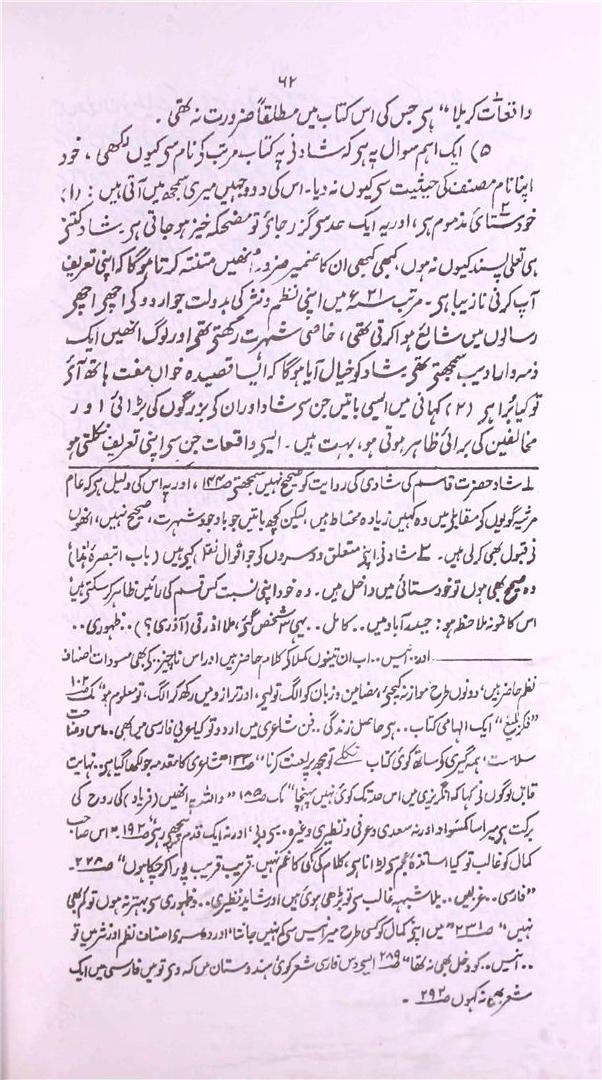 ۶۲
واقعات کربلا" ہی جس کی اس کتاب میں مطلقاً ضرورت نہ تھی۔
۵) ایک اہم سوال یہ ہی کہ شاد نی یہ کتاب مرتب کی نام سی کیوں لکھی، خود
اپنا نام مصنف کی حیثیت سی کیوں نہ دیا۔ اس کی دو وجہیں میری سمجھ میں آتی ہیں: (۱)
خود ستائی مذموم ہی، اور یہ ایک حد سی گزر جائی تو مضحکہ خیز ہو جاتی ہی۔ شاد کتنی
ہی تعلی پسند کیوں نہ ہوں، کبھی کبھی ان کا ضمیر ضرور انھیں متنبہ کرتا ہوگا کہ اپنی تعریف
آپ کرنی نازیبا ہی۔ مرتب ۲۱ء میں اپنی نظم و نثر کی بدولت جو اردو کی اچھی اچھی
رسالوں میں شائع ہوا کرتی تھی، خاصی شہرت رکھتی تھی اور لوگ انھیں ایک
ذمہ دار ادیب سمجھتی تھی۔ شاد کو خیال آیا ہوگا کہ ایسا قصیدہ خواں مفت ہاتھ آئی
تو کیا برا ہی (۲) کہانی میں ایسی باتیں جن سی شاد اور ان کی بزرگوں کی بڑائی اور
مخالفین کی برائی ظاہر ہوتی ہو، بہت ہیں۔ ایسی واقعات جن سی اپنی تعریف نکلتی ہو
۱ شاد حضرت قاسم کی شادی کی روایت کو صحیح نہیں سمجھتی ص۱۴۴، اور یہ اس کی دلیل ہی کہ عام
مرثیہ گویوں کی مقابلی میں وہ کہیں زیادہ محتاط ہیں، لیکن کچھ باتیں جو باوجود شہرت، صحیح نہیں، انھوں
نی قبول بھی کرلی ہیں۔ ۲ شاد نی اپنی متعلق دوسروں کی جو اقوال نقل کیی ہیں (باب ۱ تبصرۂ ہٰذا)
وہ صحیح بھی ہوں تو خودستائی میں داخل ہیں۔ وہ خود اپنی نسبت کس قسم کی رائیں ظاہر کرسکتی ہیں
اس کا نمونہ ملاحظہ ہو: حیدرآباد میں.. کامل.. یہی ۳ شخص گنی، ملا اذرقی (آذری؟).. ظہوری..
اور.. انیس.. اب ان تینوں کملا کی کلام حاضر ہیں اور اس ناچیز.. کی بھی مسودات اصناف
نظم حاضر ہیں، دونوں طرح موازنہ کیجیی، مضامین و زبان کو الگ تولیی، اور ترازو میں رکھ کر الگ، تو معلوم ہو" ص۱۰۲
"فکر بلیغ" ایک الہامی کتاب.. ہی حاصل زندگی.. فن شاعری میں اردو تو کیا عربی فارسی میں بھی.. اس وضاحت
سلاست، ہمہ گیری کی ساتھ کوئی کتاب نکلی تو مجھ پر لعنت کرنا" ص۱۳۳ شاعری کا مقدمہ جو لکھا گیا ہی.. نہایت
قابل لوگوں نی کہا کہ انگریزی میں اس حد تک کوئی نہیں پہنچا" ص۱۸۵ "واللہ یہ انھیں (فریاد) کی روح کی
برکت ہی میرا سا کم سواد اور نہ سعدی و عرفی و نظیری وغیرہ.. اور نہ ایک قدم پیچھی رہی ص۱۹۲ "اس صاحب
کمال کو غالب تو کیا اساتذۂ عجم سی لڑانا ہی، کلام کی کمی کا غم نہیں، قریب قریب پورا کر چکا ہوں" ص۲۲۸۔
"فارسی.. غزلیں.. بلا شبہہ غالب سی تو بڑھی ہوئی ہیں اور شاید نظیری.. و ظہوری سی بہتر نہ ہوں تو کم بھی
نہیں" ص۲۳۱ "میں اپنی کمال کو کسی طرح میر انیس سی کم نہیں جانتا" اور دوسری اصناف نظم اور نثر میں تو
.. انیس.. کو دخل بھی نہ تھا" ص۲۸۹ ایسی دس فارسی شعر کوئی ہندوستان میں کہہ دی تو میں فارسی میں ایک
شعر بھی نہ کہوں ص۲۹۲۔